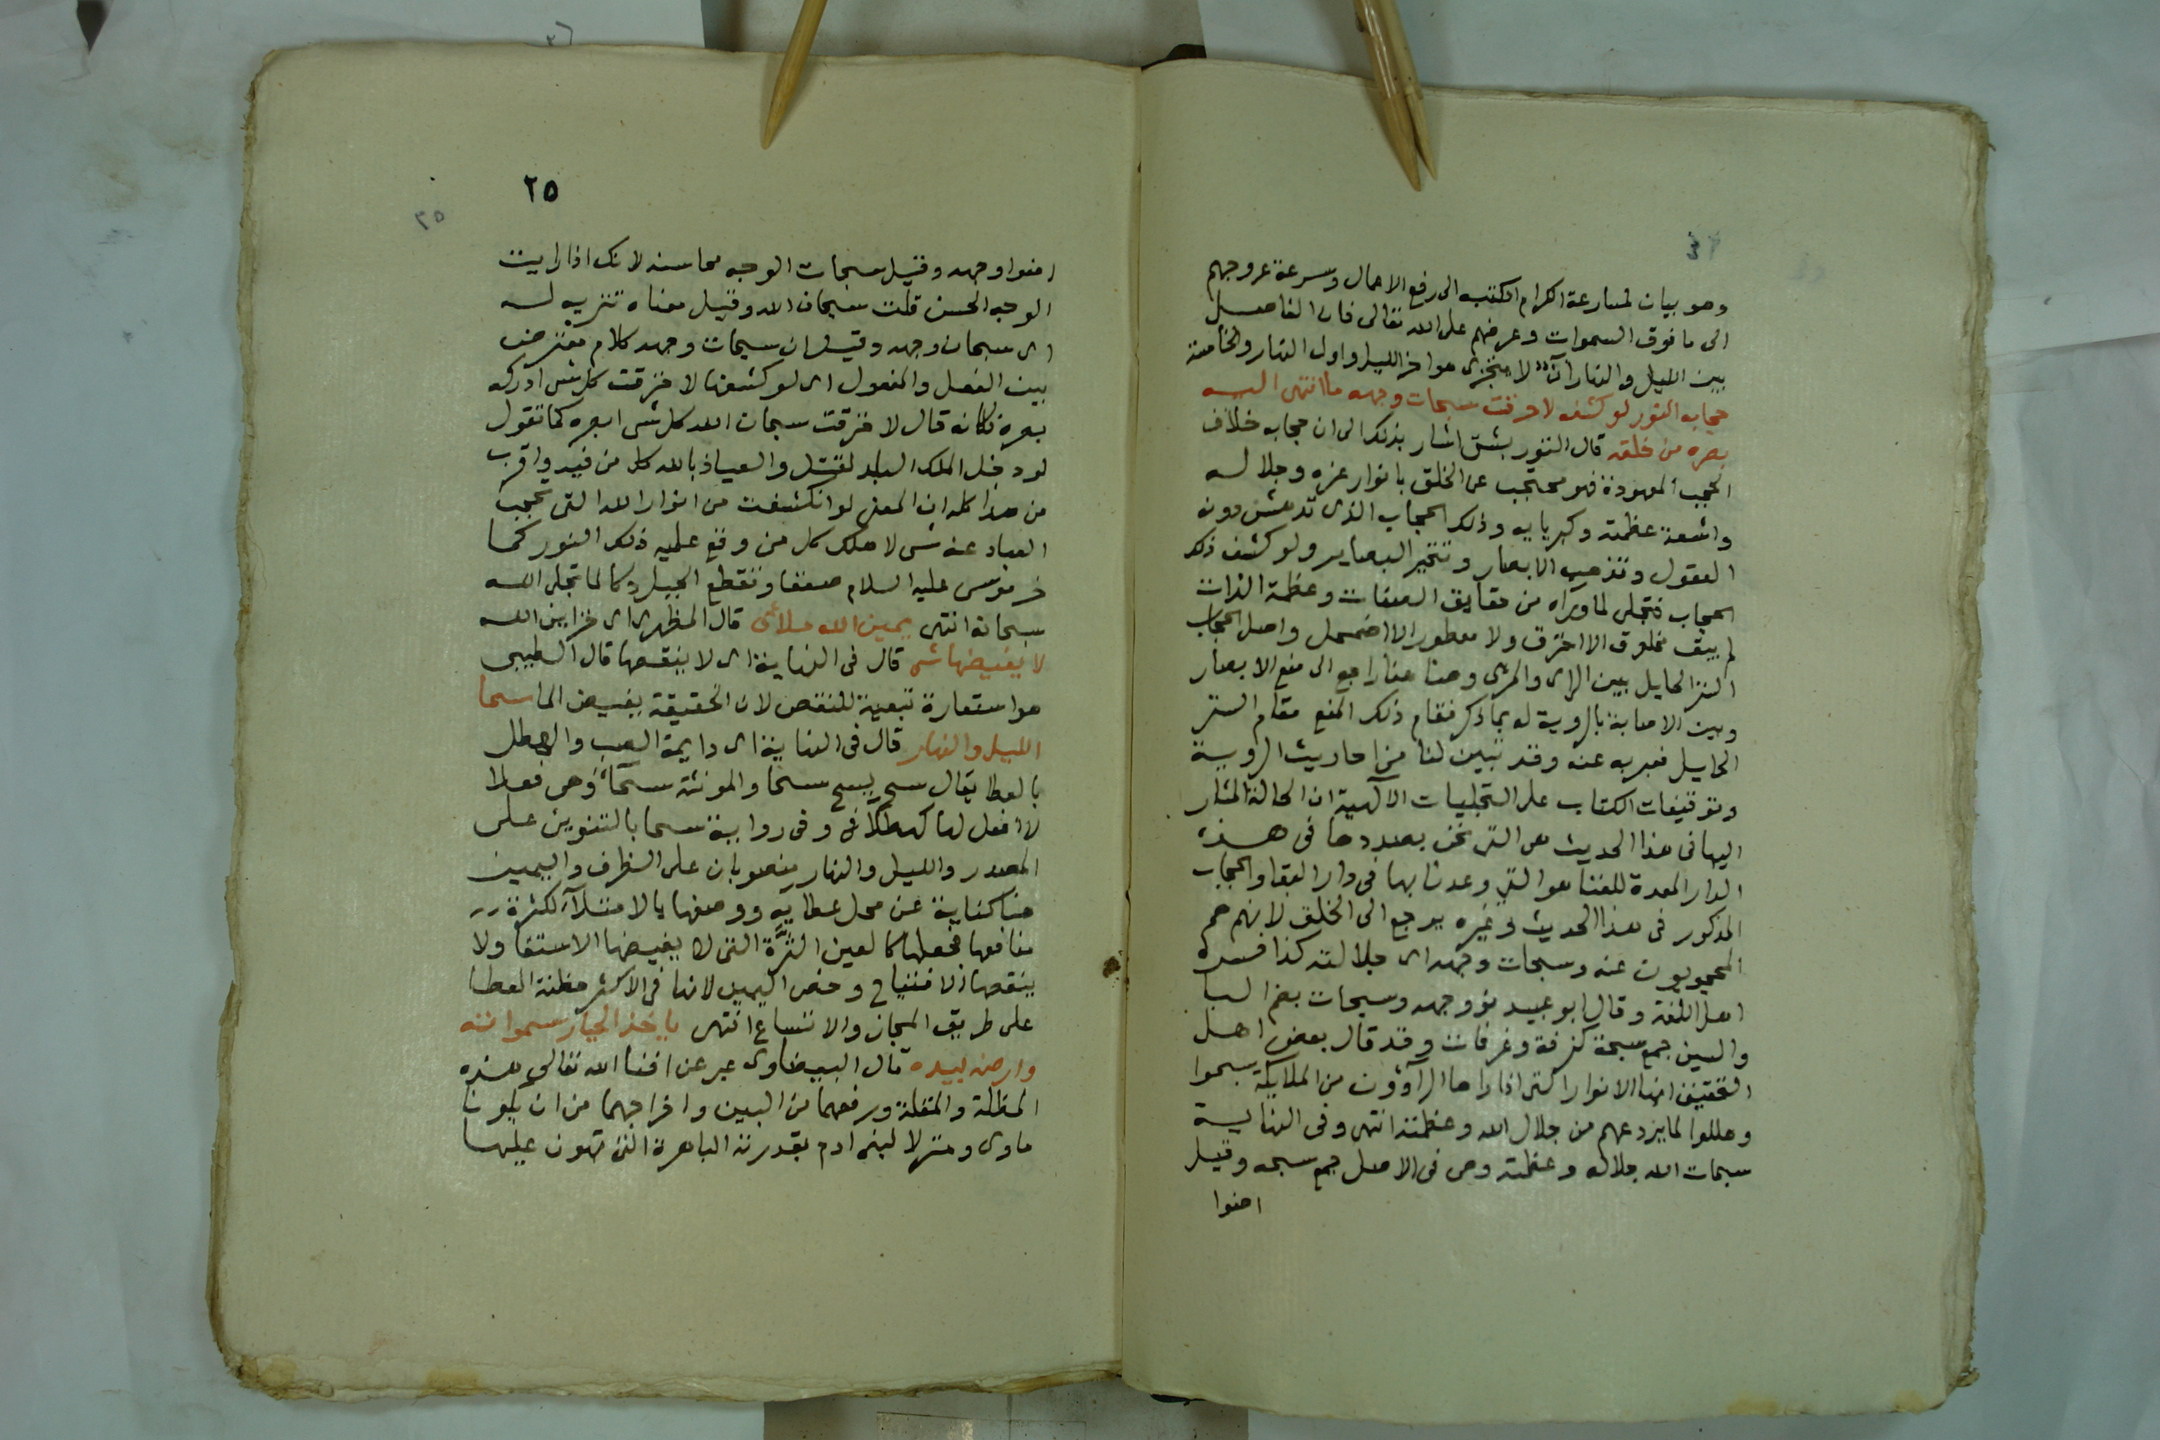 وهو بيان لمسارعة الكرام الكتبة الى رفع الاعمال وسرعة عروجهم
الى ما فوق السموات وعرضهم على الله تعالى فان الفاصل
بين الليل والنهار آن لا يتجزى هو اخر الليل واول النهار والخامسة
حجابه النور لو كشفه لاحرقت سبحات وجهه ما انتهى اليه
بصره من خلقه قال التوربشتى اشار بذلك الى ان حجابه خلاف
الحجب المعهودة فهو محتجب عن الخلق بانوار عزه وجلاله
واشعة عظمته وكبريايه وذلك الحجاب الذى تدهش دونه
العقول وتذهب الابصار وتتحير البصاير ولو كشف ذلك
الحجاب فتجلى لما وراه من حقايق الصفات وعظمة الذات
لم يبق مخلوق الا احترق ولا مفطور الا اضمحل واصل الحجاب
الستر الحايل بين الراى والمرى وهنا هنا راجع الى منع الابصار
وبين الاصابة بالروية له بما ذكر فقام ذلك المنع مقام الستر
الحايل فعبر به عنه وقد تبين لنا من احاديث الروية
وتوقيفات الكتاب على التجليات الالهية ان الحالة المشار
اليها فى هذا الحديث هى التى نحن بصددها فى هذه
الدار المعدة للفنا هو التى وعدنا بها فى دار البقا والحجاب
المذكور فى هذا الحديث وغيره يرجع الى الخلق لانهم هم
المحجوبون عنه وسبحات وجهه اى جلالته كذا فسره
اهل اللغة وقال ابو عبيد نور وجهه وسبحات بضم البا
والسين جمع سبحة كغرفة وغرفات وقد قال بعض اهل
التحقيق انها الانوار التى اذا راها الراؤون من الملايكة سبحوا
وهللوا لما يردعهم من جلال الله وعظمته انتهى وفى النهاية
سبحات الله جلاله وعظمته وهى فى الاصل جمع سبحه وقيل
اضوا
٢٥
٢٥
اضوا وجهه وقيل سبحات الوجه محاسنه لانك اذا رايت
الوجه الحسن قلت سبحان الله وقيل معناه تنزيه له
اى سبحان وجهه وقيل ان سبحات وجهه كلام معترض
بين الفعل والمفعول اى لو كشفها لاحرقت كل شى ادركه
بصره فكانه قال لاحرقت سبحات الله كل شى ابصره كما تقول
لو دخل الملك البلد لقتل والعياذ بالله كل من فيه واقرب
من هذا كله ان المعنى لو انكشفت من انوار الله التى تحجب
العباد عنه شى لاهلك كل من وقع عليه ذلك النور كما
خر موسى عليه السلام صعقا وتقطع الجبل دكا لما تجلى الله
سبحانه انتهى يمين الله ملائى قال المظهرى اى خزاين الله
لا يغيضها شى قال فى النهاية اى لا ينقصها قال الطيبى
هو استعارة تبعية للنقص لان الحقيقة يغيض الما سحا
الليل والنهار قال فى النهاية اى دايمة الصب والهطل
بالعطا يقال سح يسح سحا والمونثة سحاء وهى فعلا
لا افعل لها كهطلاء وفى رواية سحا بالتنوين على
المصدر والليل والنهار منصوبان على الظرف واليمين
هنا كناية عن محل عطايه ووصفها بالامتلاء لكثرة
منافعها فجعلها كالعين الثرة التى لا يغيضها الاستقا ولا
ينقصها الامتياح وخص اليمين لانها فى الاكثر مظنة العطا
على طريق المجاز والاتساع انتهى ياخذ الجبار سمواته
وارضه بيده قال البيضاوى عبر عن افنا الله تعالى هذه
المظلة والمقلة ورفعهما من البين واخراجهما من ان يكونا
ماوى ومنزلا لبنى ادم بقدرته الباهرة التى تهون عليها